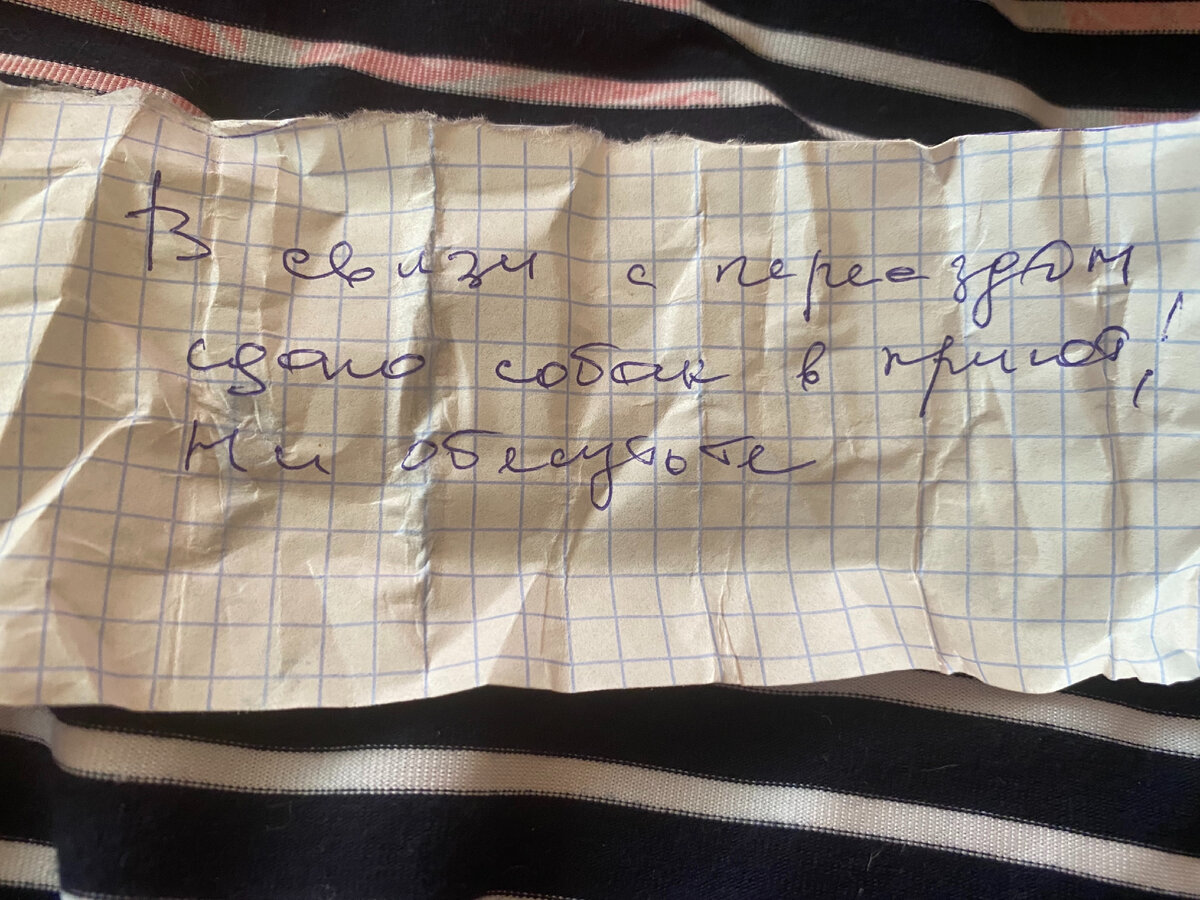 В связи с переездом
сдаю собак в приют,!
Ни обесутьте